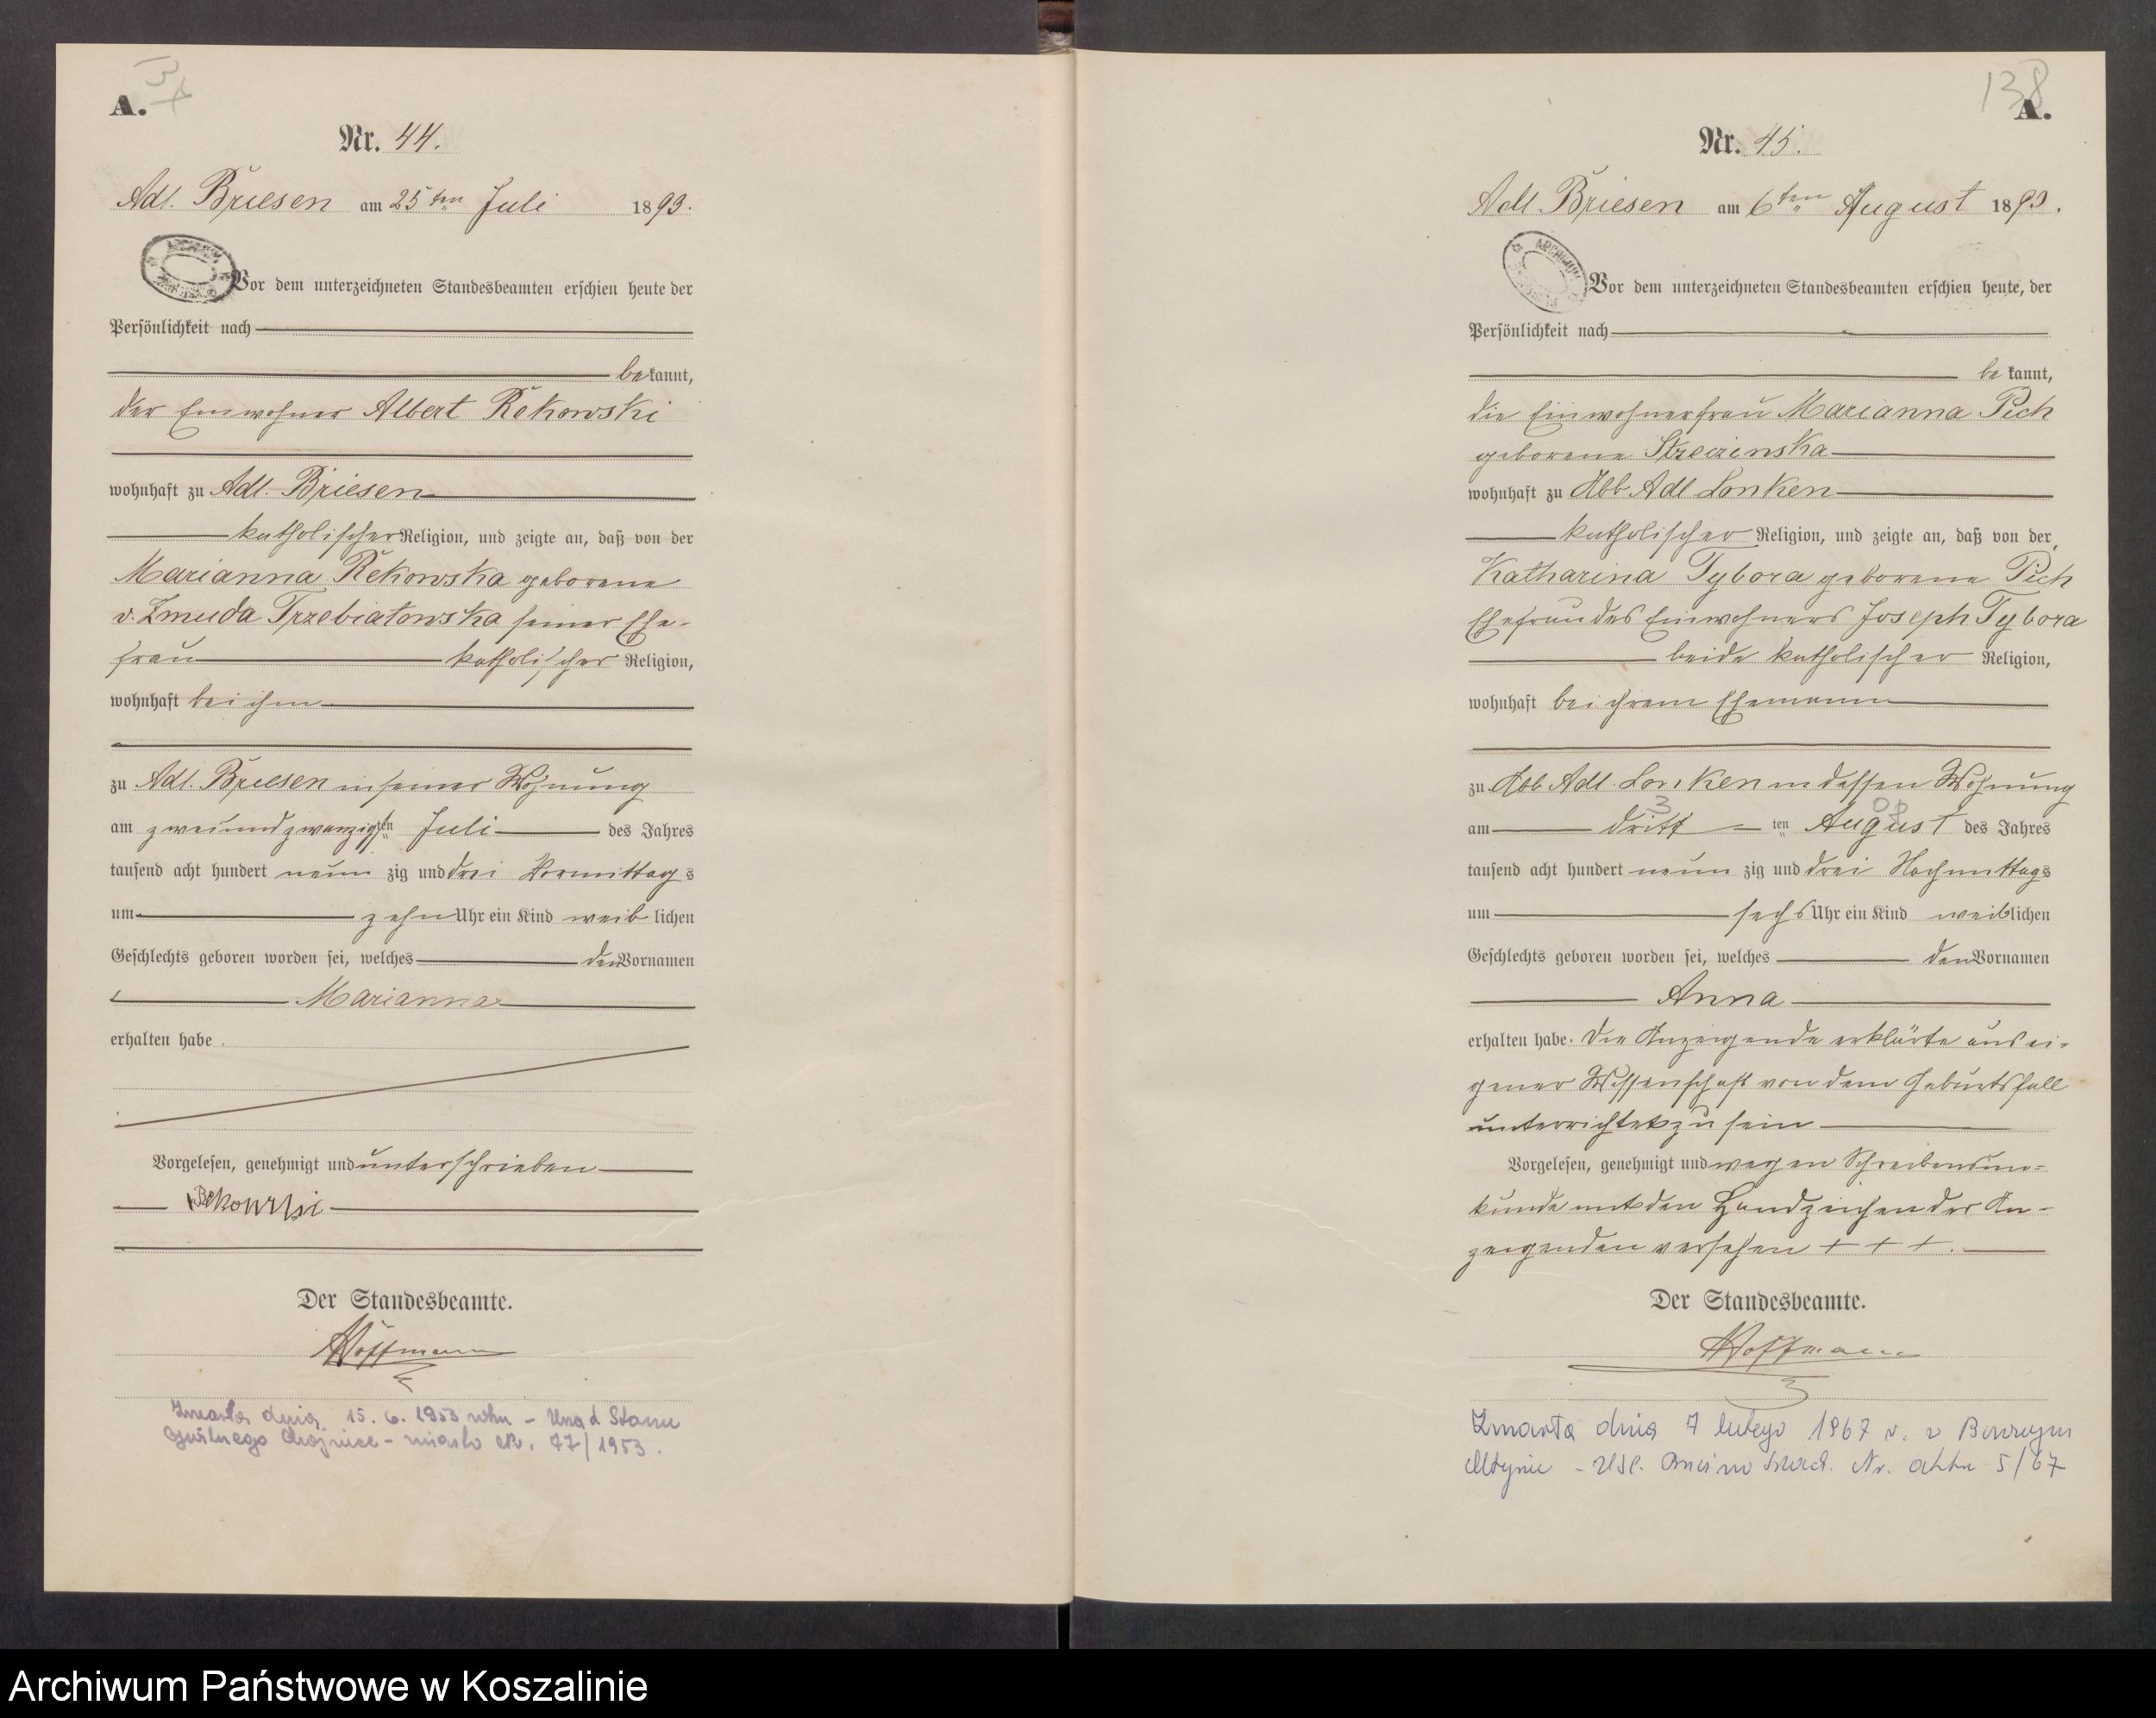 A.
Nr. 44.
Adl. Briesen am 25ten Juli 1893.
Vor dem unterzeichneten Standesbeamten erschien heute der
Persönlichkeit nach
bekannt,
der Einwohner Albert Rekowski
wohnhaft zu Adl. Briesen
katholischer Religion, und zeigte an, daß von der
Marianna Rekowska geborene
v. Zmuda Trzebiatowska seiner Ehe-
frau katholischer Religion,
wohnhaft bei ihm
zu Adl. Briesen in seiner Wohnung
am zweiundzwanzigsten Juli des Jahres
tausend acht hundert neun zig und drei Vormittags
um zehn Uhr ein Kind weiblichen
Geschlechts geboren worden sei, welches den Vornamen
Marianna
erhalten habe.
Vorgelesen, genehmigt und unterschrieben
Rekowski
Der Standesbeamte.
Hoffmann
Zmarła dnia 15. 6. 1953 roku - Urząd Stanu
Cywilnego Chojnice - miasto nr. 77/1953.
138
A.
Nr. 45.
Adl. Briesen am 6ten August 1893.
Vor dem unterzeichneten Standesbeamten erschien heute, der
Persönlichkeit nach
bekannt,
die Einwohnerfrau Marianna Pich
geborene
wohnhaft zu Abb Adl Lonken
katholischer Religion, und zeigte an, daß von der
Katharina Tybora geborene Pich
Ehefrau des Einwohners Joseph Tybora
beide katholischer Religion,
wohnhaft bei ihrem Ehemann
zu Abb Adl. Lonken in dessen Wohnung
am dritt ten August des Jahres
tausend acht hundert neun zig und drei Nachmittags
um sechs Uhr ein Kind weiblichen
Geschlechts geboren worden sei, welches den Vornamen
Anna
erhalten habe. Die Anzeigende erklärte aus ei-
gener Wissenschaft von dem Geburtsfall
unterrichtet zu sein
Vorgelesen, genehmigt und wegen Schreibensun-
kunde mit den Handzeichen der An-
zeigenden versehen + + +.
Der Standesbeamte.
Hoffmann
Zmarła dnia 7 lutego 1967 r. w
Młynie - USC. Nr. aktu 5/67
Archiwum Państwowe w Koszalinie